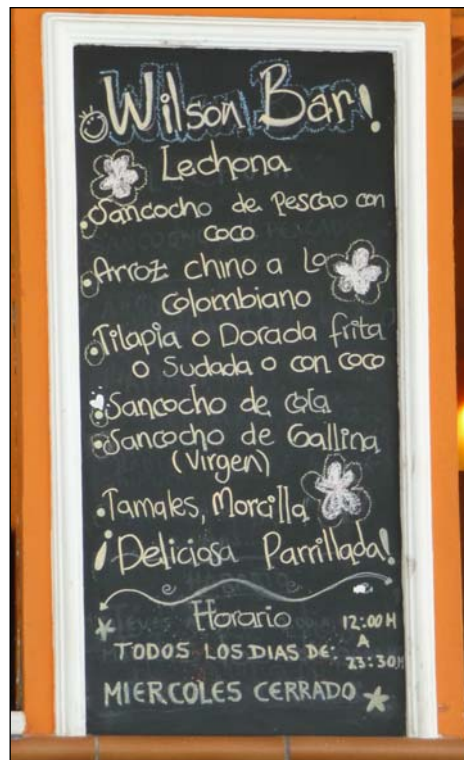 Wilson Bar!
Lechona
Sancocho de Pescao con
coco
Arroz chino a Lo
Colombiano
Tilapia o Dorada frita
o Sudada o con coco
Sancocho de cola
Sancocho de Gallina
(Virgen)
Tamales, Morcilla
¡Deliciosa Parrillada!
Horario
12:00 H
TODOS LOS DIAS DE: A
23:30 H
MIERCOLES CERRADO